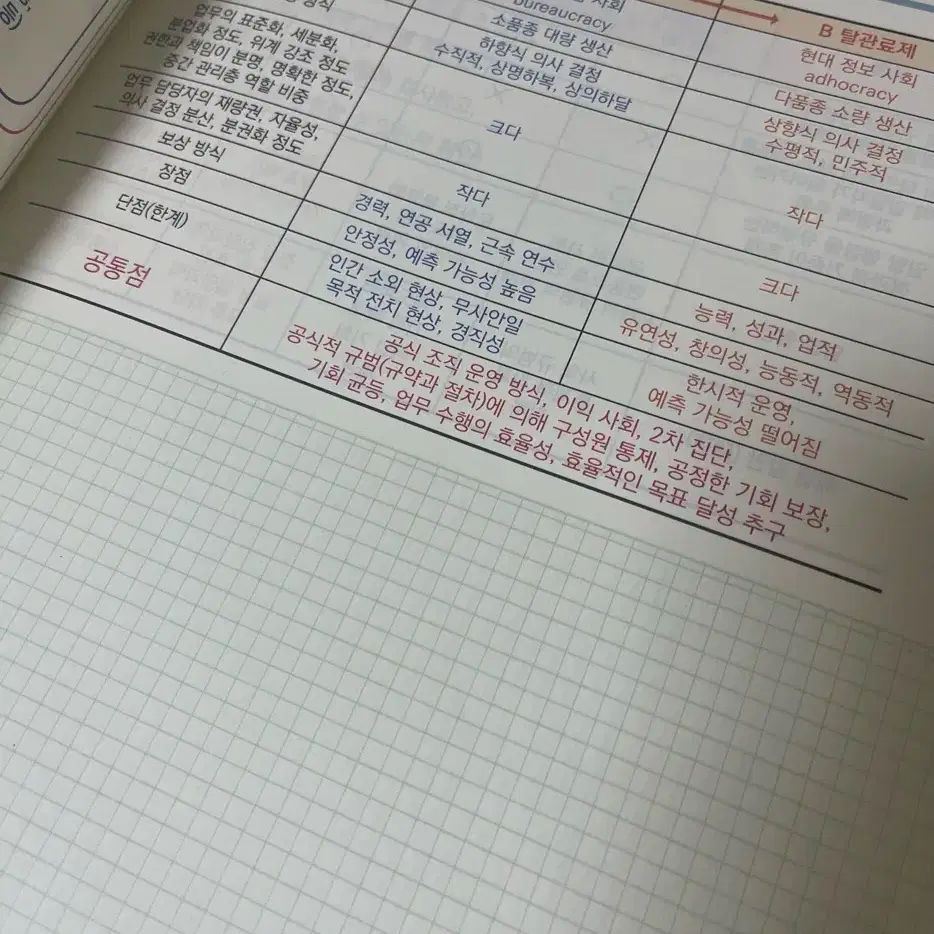 사회
B 탈관료제
방식
bureaucracy
현대 정보 사회
adhocracy
소품종 대량 생산
다품종 소량 생산
하향식 의사 결정
수직적, 상명하복, 상의하달
상향식 의사 결정
수평적, 민주적
업무의 표준화, 세분화,
분업화 정도, 위계 강조 정도
권한과 책임이 분명, 명확한 정도,
중간 관리층 역할 비중
크다
작다
업무 담당자의 재량권, 자율성,
의사 결정 분산, 분권화 정도
작다
크다
보상 방식
경력, 연공 서열, 근속 연수
능력, 성과, 업적
장점
안정성, 예측 가능성 높음
유연성, 창의성, 능동적, 역동적
단점(한계)
인간 소외 현상, 무사안일
목적 전치 현상, 경직성
한시적 운영,
예측 가능성 떨어짐
공통점
공식 조직 운영 방식, 이익 사회, 2차 집단,
공식적 규범(규약과 절차)에 의해 구성원 통제, 공정한 기회 보장,
기회 균등, 업무 수행의 효율성, 효율적인 목표 달성 추구